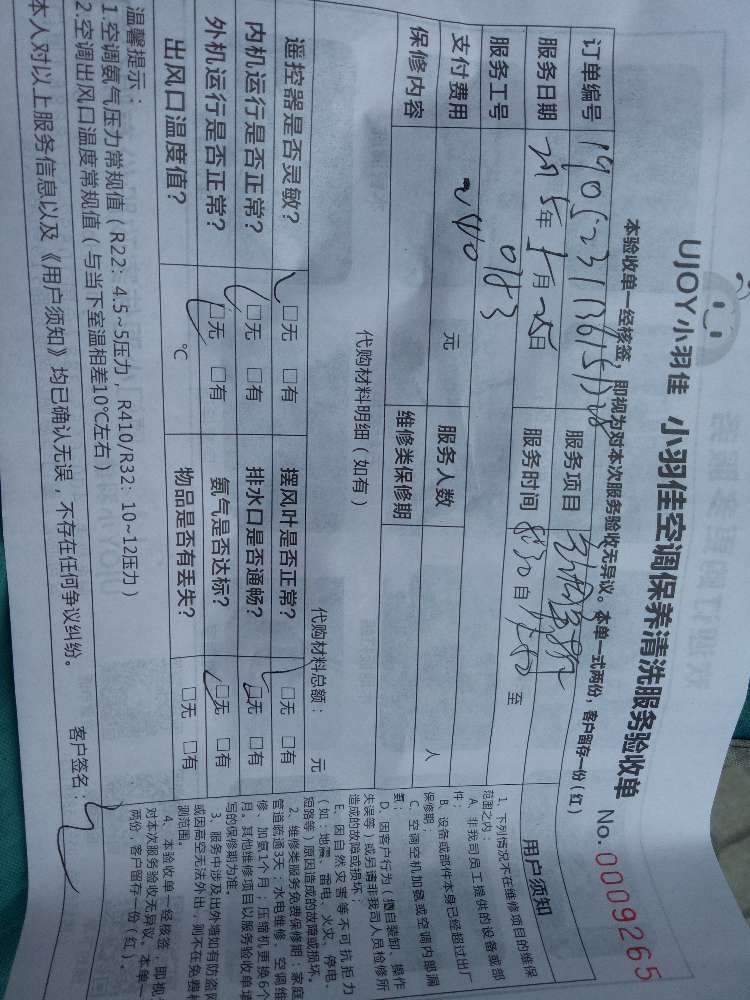 UJOY小羽佳 小羽佳空调保养清洗服务验收单 No. 0009265
本验收单一经核签，即视为对本次服务验收无异议。本单一式两份，客户留存一份(红)
订单编号 服务项目
服务日期 年 月 25日 服务时间 自 至
服务工号 0183
支付费用 元 服务人数 人
保修内容 维修类保修期
代购材料明细（如有）
代购材料总额： 元
遥控器是否灵敏？ □无 □有 摆风叶是否正常？ □无 □有
内机运行是否正常？ □无 □有 排水口是否通畅？ □无 □有
外机运行是否正常？ □无 □有 氨气是否达标？ □无 □有
出风口温度值？ ℃ 物品是否有丢失？ □无 □有
温馨提示：
1.空调氨气压力常规值（R22：4.5~5压力，R410/R32：10~12压力）
2.空调出风口温度常规值（与当下室温相差10℃左右）
本人对以上服务信息以及《用户须知》均已确认无误，不存在任何争议纠纷。 客户签名：
用户须知
1、下列情况不在维修项目的维保
范围之内：
A、非我司员工提供的设备或部
件；
B、设备或部件本身已经超过出厂
保修期；
C、空调空机加氨或空调内部漏
氨；
D、因客户行为（擅自装卸、操作
失误等）或另请非我司人员检修所
造成的故障或损坏；
E、因自然灾害等不可抗拒力
（如：地震、雷电、火灾、停电、
短路等）原因造成的故障或损坏。
2、维修类服务免费保修期：家庭
管道疏通3天；水电维修、空调维
修、加氨1个月；压缩机更换6个
月。其他维修项目以服务验收单填
写的保修期为准。
3、服务中涉及出外墙如有防盗网
或因高空无法外出，则不在免费检
测范围。
4、本验收单一经核签，即视
对本次服务验收无异议。本单一
两份，客户留存一份（红）。